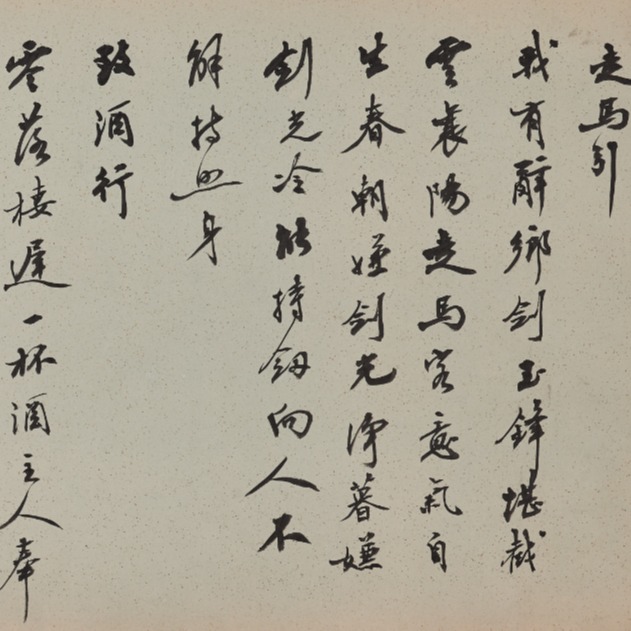 走馬引
我有辭鄉劍玉鋒堪截
雲襄陽走馬客意氣自
生春朝嫌劍光淨暮嫌
劍光冷能持釼向人不
解持照身
致酒行
零落棲遲一杯酒主人奉